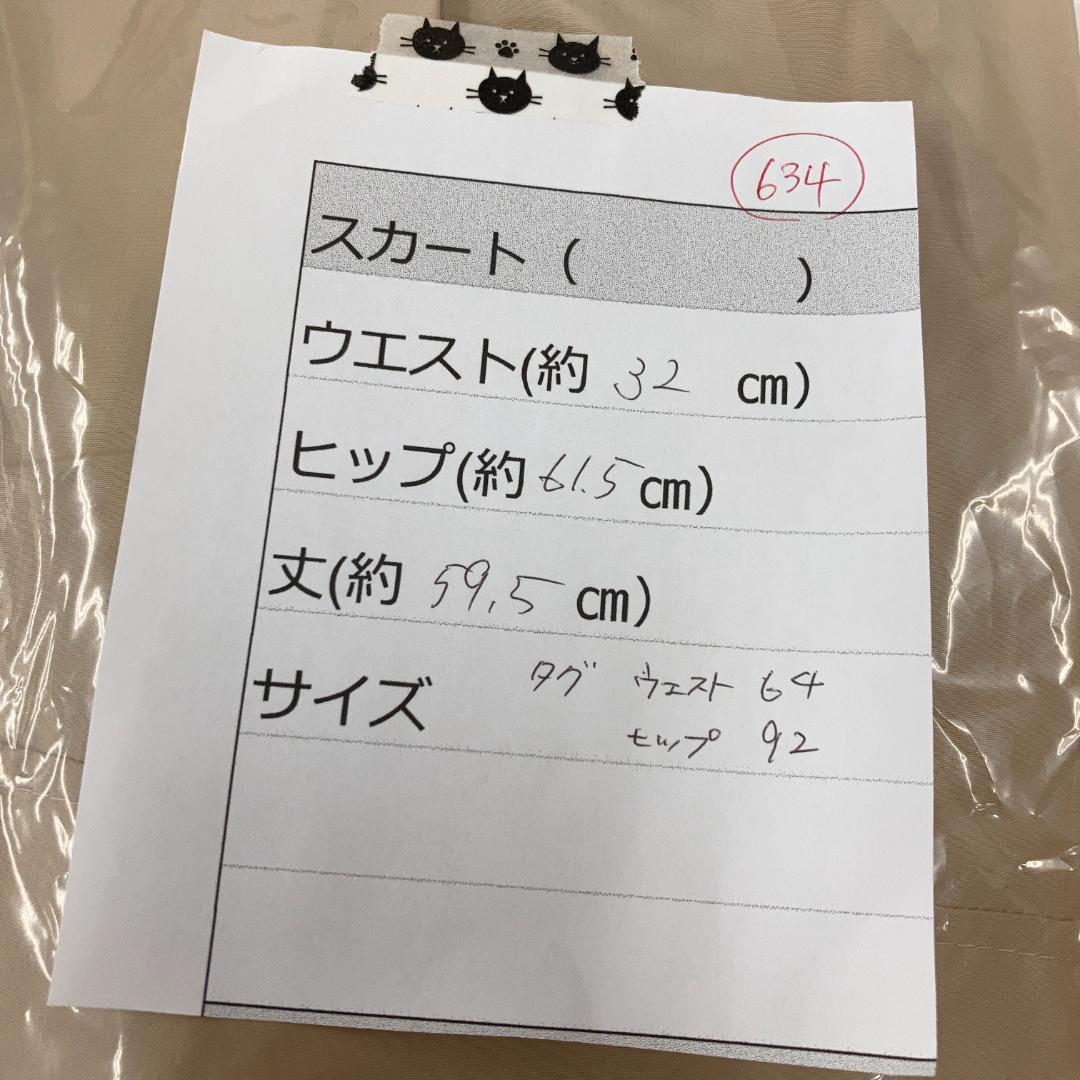 634
スカート（　　　）
ウエスト(約 32 cm)
ヒップ(約 61.5 cm)
丈(約 59.5 cm)
サイズ タグ ウエスト 64
ヒップ 92